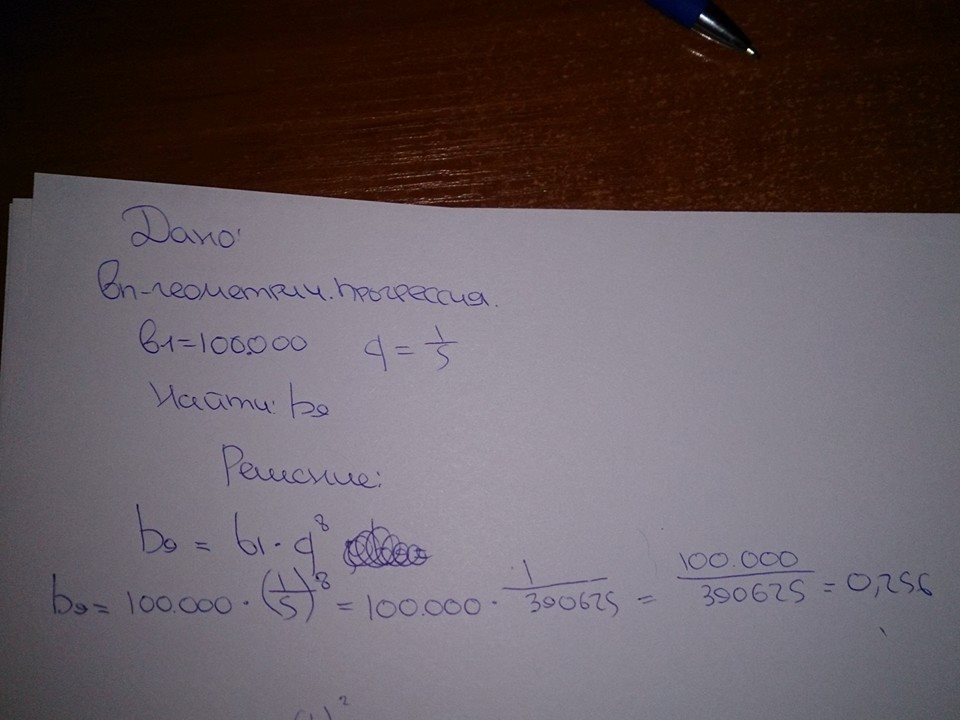 Дано:
bn-геометрич. прогрессия.
b1=100.000 q = 1/5
Найти: b9
Решение:
b9 = b1 · q^8
b9 = 100.000 · (1/5)^8 = 100.000 · 1/390625 = 100.000/390625 = 0,256